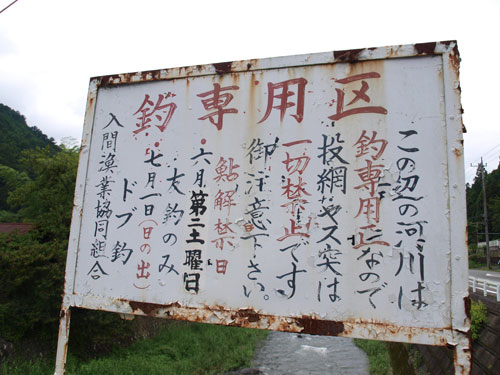 釣専用区
この辺の河川は
釣専用区なので
投網、ヤス突は
一切禁止です
御注意下さい。
鮎解禁日
・六月第二土曜日
友釣のみ
・七月一日(日の出)
ドブ釣
入間漁業協同組合